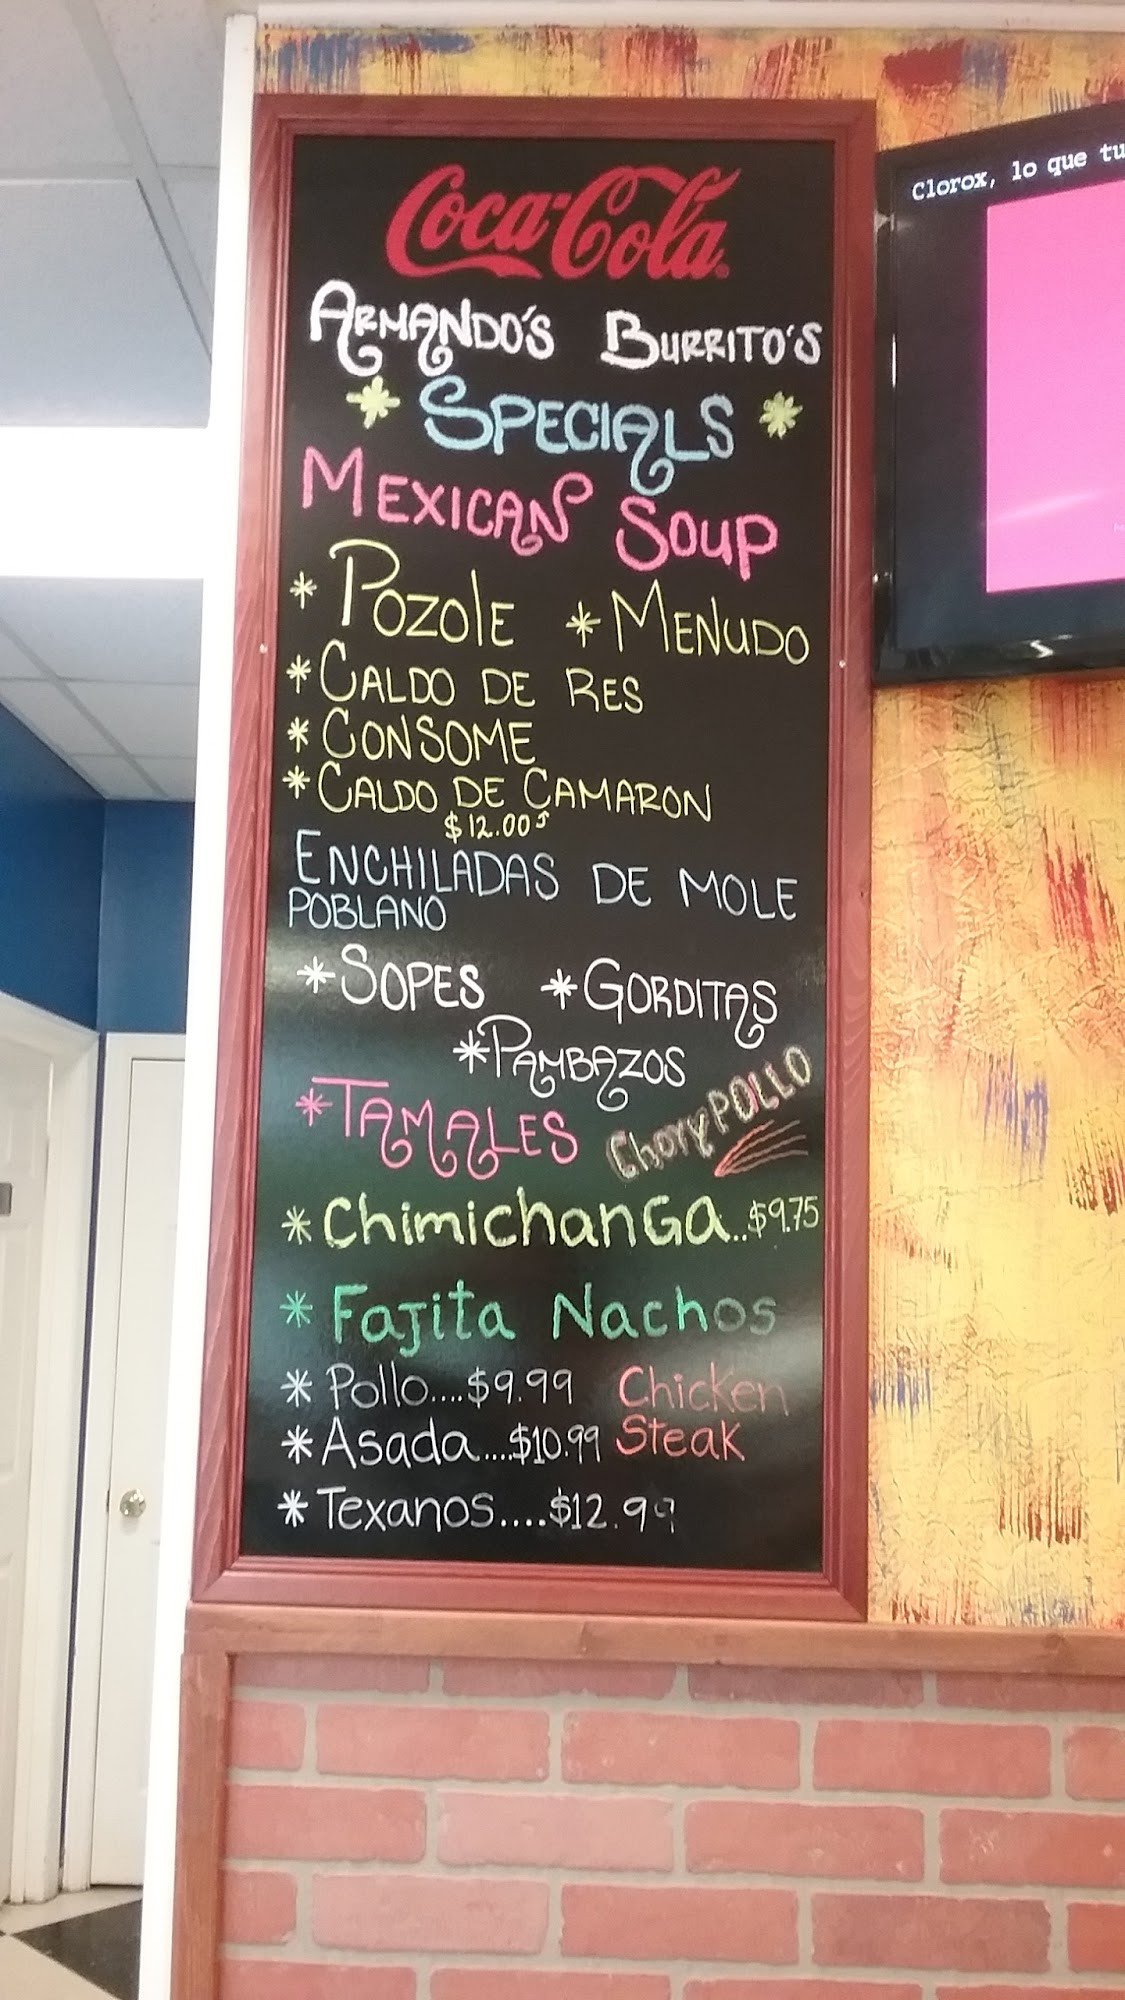 Coca-Cola
ARMANDO'S BURRITO'S
* SPECIALS *
MEXICAN SOUP
* POZOlE * MENUDO
* CALDO DE RES
* CONSOME
* CALDO DE CAMARON
$12.00
ENCHILADAS DE MOLE
POBLANO
* SOPES * GORDITAS
* PAMBAZOS
* TAMALES ChoryPOLLO
* ChimichanGa..$9.75
* Fajita Nachos
* Pollo....$9.99 Chicken
* Asada....$10.99 Steak
* Texanos....$12.99
Clorox, lo que tu